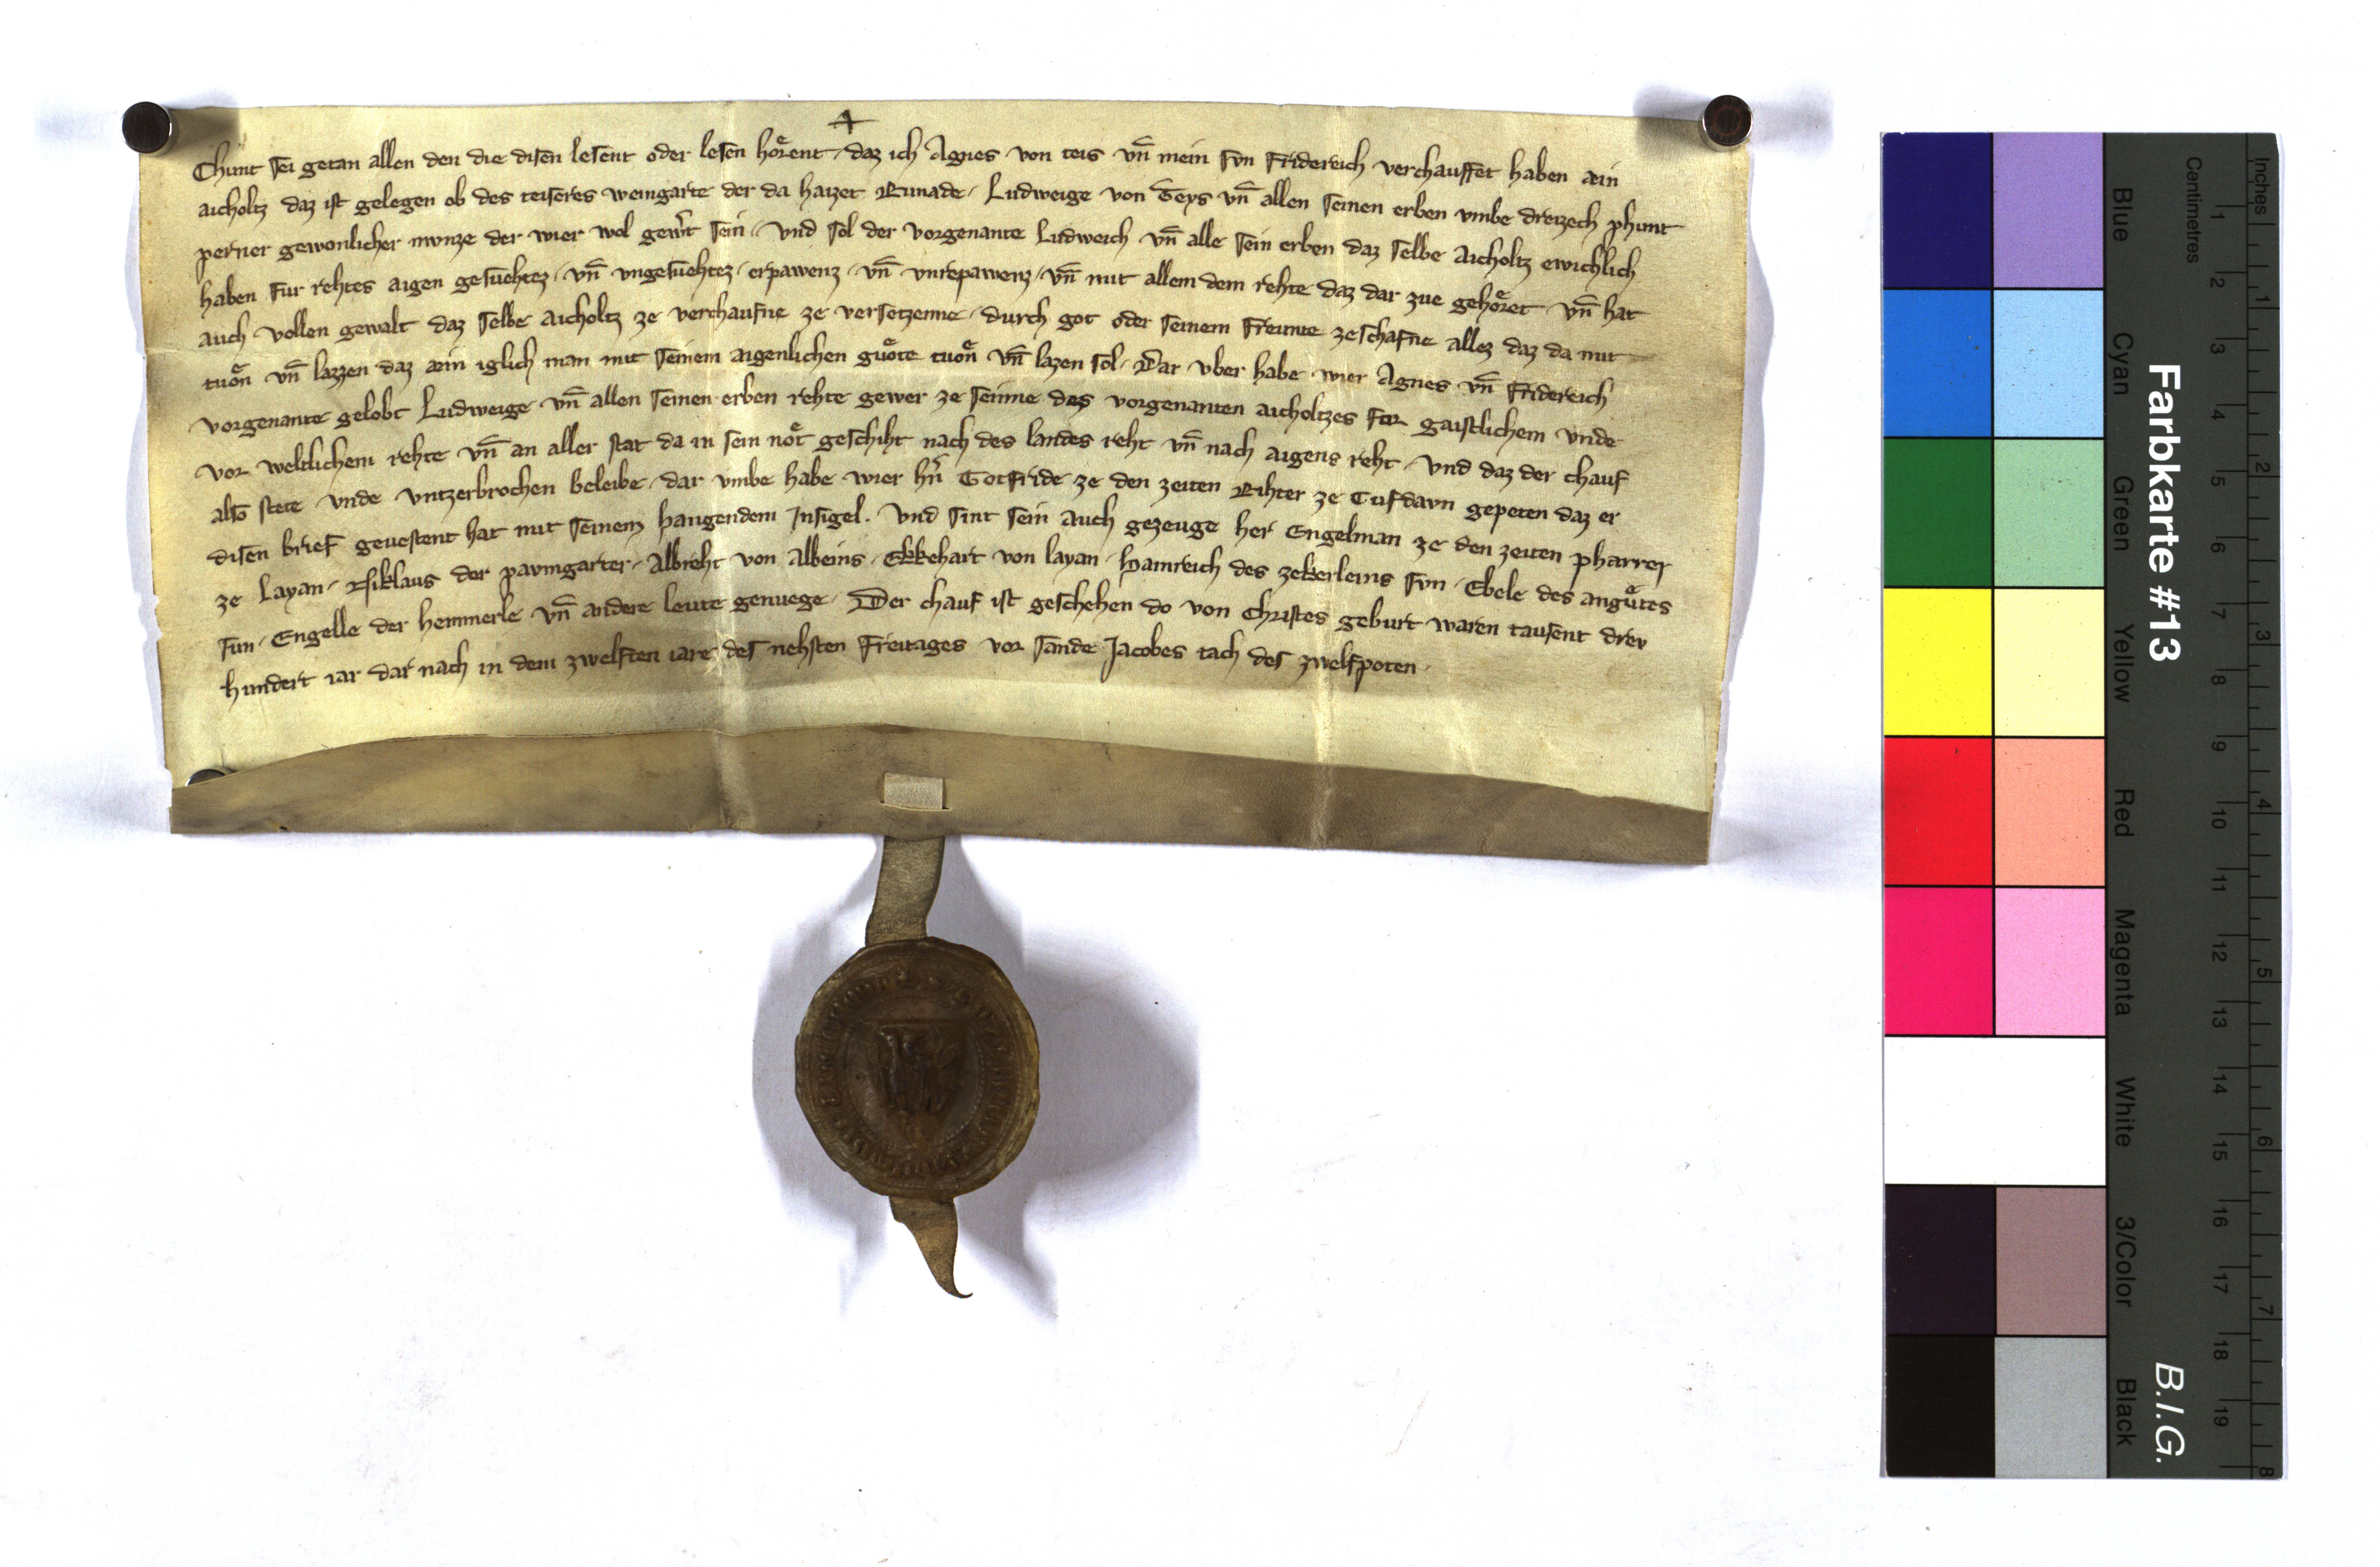 Chunt sei getan allen den die disen lesent oder lesen hoͤrent · daz ich Agnes von teis vn̄ mein svn Fridereich verchauffet haben ain
aicholtz daz ist gelegen ob des teiseres weingarte der da haizet Runade · Ludweige von Teys vn̄ allen seinen erben vmbe dreizech phunt
perner gewonlicher mvnze der wier wol gew̄t sein · Vnd sol der vorgenante Ludweich vn̄ alle sein erben daz selbe aicholtz ewichlich
haben fur rehtes aigen gesuehtez · vn̄ vngesuehtez · erpawenz · vn̄ vnrepawenz · vn̄ mit allem dem rehte daz dar zue gehoͤret vn̄ hat
auch vollen gewalt daz selbe aicholtz ze verchaufne ze versetzenne · durch got oder seinem freunte zeschafne allez daz da mit
tuoͤn vn̄ lazzen daz ain iglich man mit seinem aigenlichen guoͤte tuoͤn vn̄ lazen sol · Dar vber habe wier Agnes vn̄ Fridereich
vorgenante gelobt Ludweige vn̄ allen seinen erben rehte gewer ze seinne des vorgenanten aicholtzes for gaistlichem vnde
vor weltlichem rehte vn̄ an aller stat da in sein noͤt geschiht nach des landes reht vn̄ nach aigens reht · Vnd daz der chauf
also stete vnde vntzerbrochen beleibe · dar vmbe habe wier hn̄ Gotfride ze den zeiten Rihter ze Gufdavn gepeten daz er
disen brief geuestent hat mit seinem hangendem Insigel · Vnd sint sein auch gezeuge her Engelman ze den zeiten pharrer
ze Layan · Niklaus der pavmgarter · Albreht von Albeins · Ekkehart von layan · Hainreich des zekerleins svn · Ebele des anguͤtes
sun · Engelle der hemmerle vn̄ andere leute genuege · Der chauf ist geschehen do von Christes geburt waren tausent drev
hundert iar dar nach in dem zwelften iare des nehsten Freitages vor sande Jacobes tach des zwelfpoten ·
Farbkarte #13
B.I.G.
Inches
Centimetres
1 2 3 4 5 6 7 8
1 2 3 4 5 6 7 8 9 10 11 12 13 14 15 16 17 18 19
Blue
Cyan
Green
Yellow
Red
Magenta
White
3/Color
Black